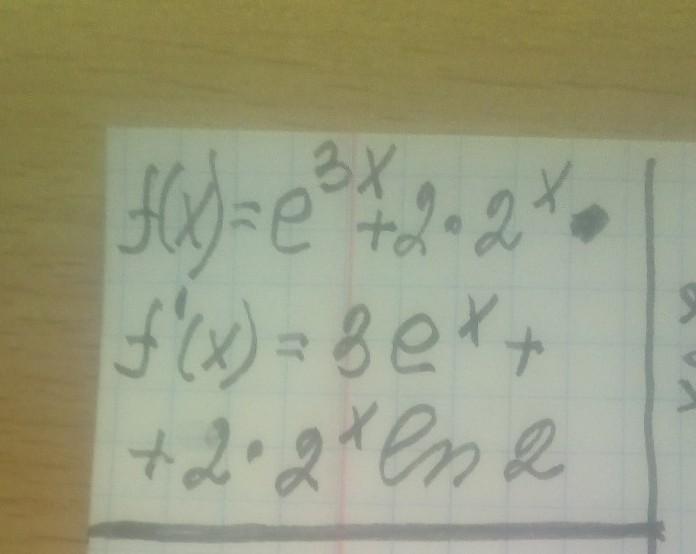 f(x) = e^{3x} + 2 · 2^x
f'(x) = 3e^x +
+ 2 · 2^x ln 2